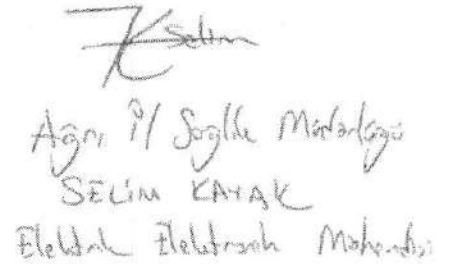 Selim
Ağrı İl Sağlık Müdürlüğü
SELİM KAYAK
Elektrik Elektronik Mühendisi